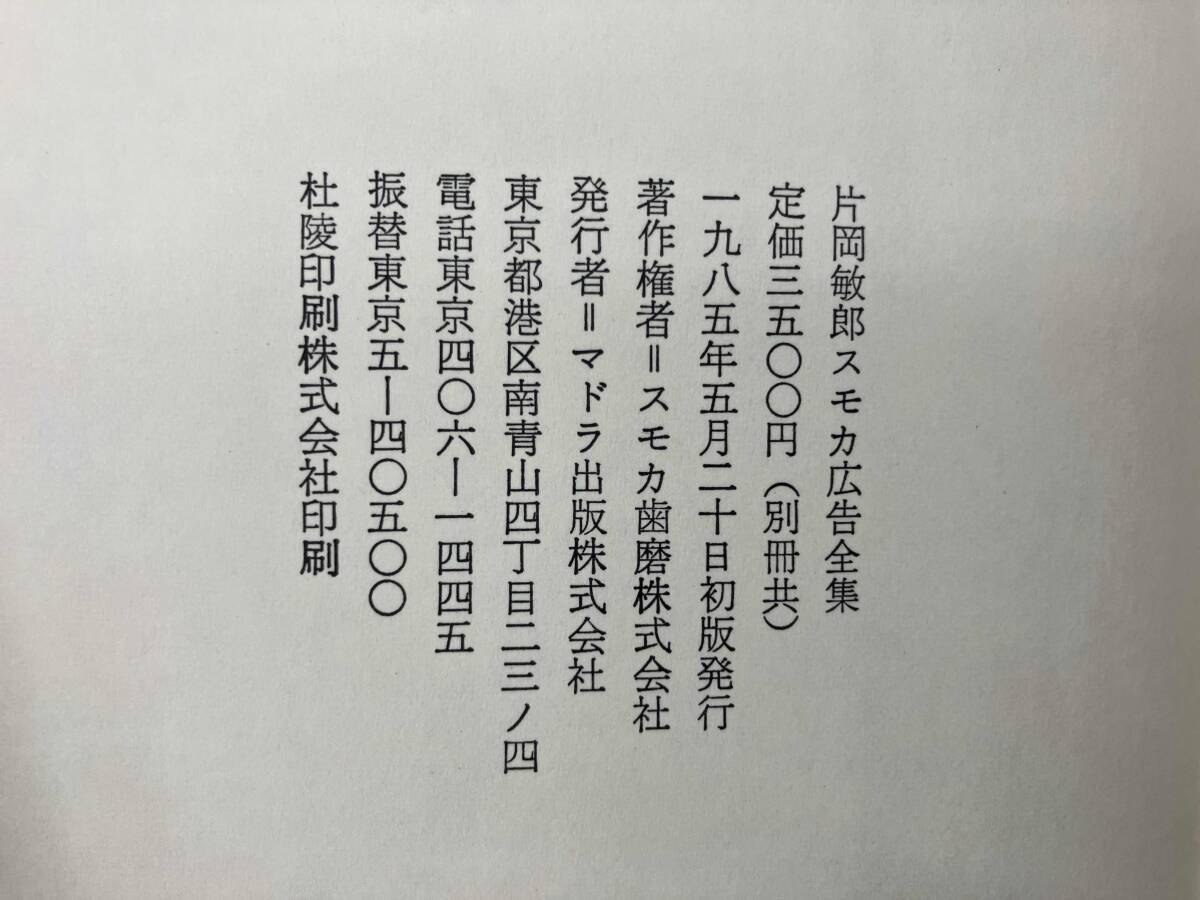 片岡敏郎スモカ広告全集
定価三五〇〇円（別冊共）
一九八五年五月二十日初版発行
著作権者＝スモカ歯磨株式会社
発行者＝マドラ出版株式会社
東京都港区南青山四丁目二三ノ四
電話東京四〇六ー一四四五
振替東京五ー四〇五〇〇
杜陵印刷株式会社印刷